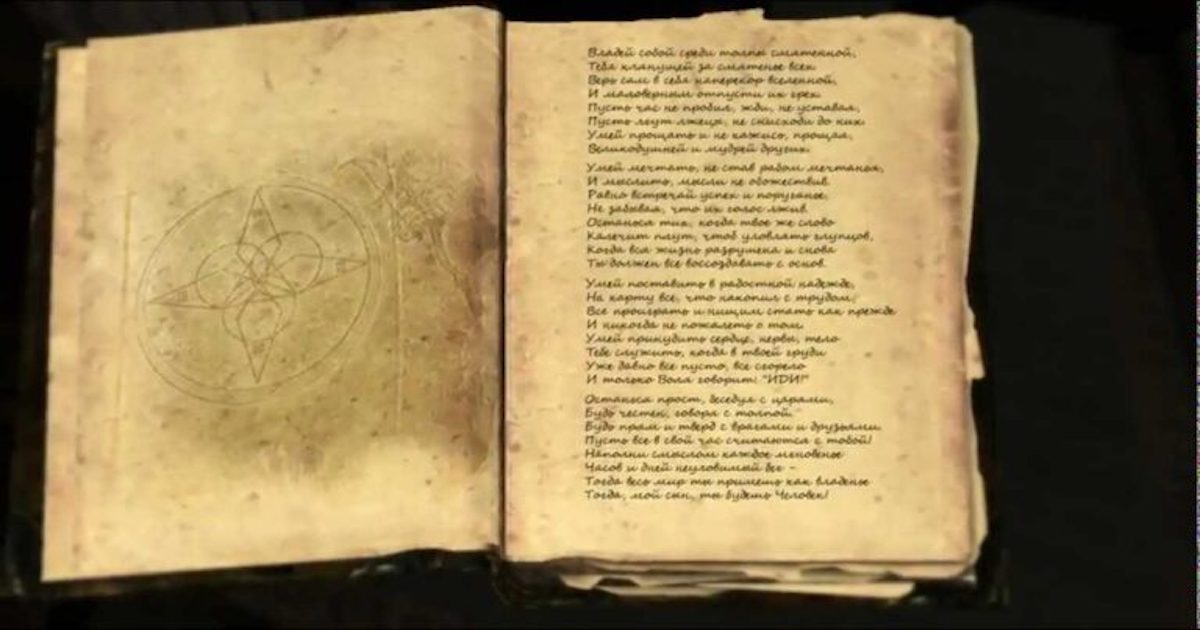 Владей собой среди толпы смятенной,
Тебя клянущей за смятенье всех
Верь сам в себя наперекор вселенной,
И маловерным отпусти их грех.
Пусть час не пробил, жди, не уставая,
Пусть лгут лжецы, не снисходи до них.
Умей прощать и не кажись, прощая,
Великодушней и мудрей других.
Умей мечтать, не став рабом мечтанья,
И мыслить, мысли не обожествив.
Равно встречай успех и поруганье,
Не забывая, что их голос лжив.
Останься тих, когда твое же слово
Калечит плут, чтоб уловлять глупцов,
Когда вся жизнь разрушена и снова
Ты должен все воссоздавать с основ.
Умей поставить в радостной надежде,
На карту все, что накопил с трудом,
Все проиграть и нищим стать как прежде
И никогда не пожалеть о том.
Умей принудить сердце, нервы, тело
Тебе служить, когда в твоей груди
Уже давно все пусто, все сгорело
И только Воля говорит: "ИДИ!"
Останься прост, беседуя с царями,
Будь честен, говоря с толпой.
Будь прям и тверд с врагами и друзьями.
Пусть все в свой час считаются с тобой!
Наполни смыслом каждое мгновенье
Часов и дней неуловимый бег -
Тогда весь мир ты примешь как владенье
Тогда, мой сын, ты будешь Человек!